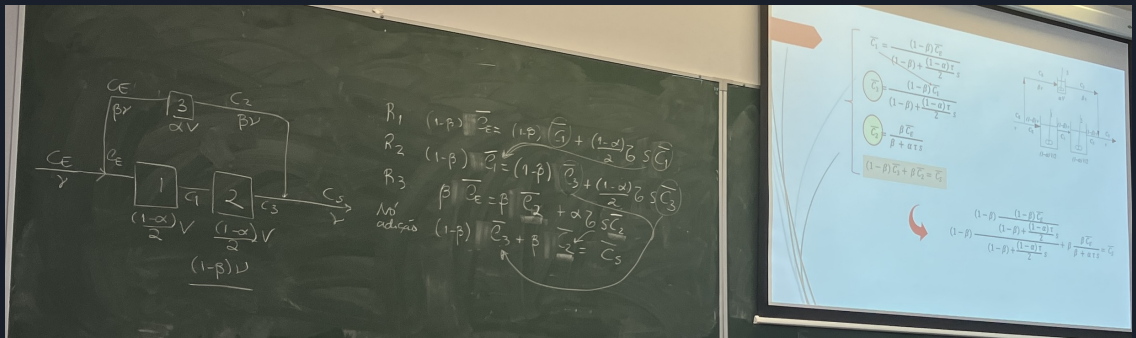 C_E 3 C_2
βν αV βν
C_E C_E 1 C_1 2 C_3 C_S
ν (1-α)/2 V (1-α)/2 V ν
(1-β)ν
R1 (1-β) C̄_E = (1-β) C̄_1 + (1-α)/2 τ s C̄_1
R2 (1-β) C̄_1 = (1-β) C̄_3 + (1-α)/2 τ s C̄_3
R3 β C̄_E = β C̄_2 + α τ s C̄_2
Nó
adição (1-β) C̄_3 + β C̄_2 = C̄_S
C̄_1 = (1-β) C̄_E / ((1-β) + (1-α)τ/2 s)
C̄_3 = (1-β) C̄_1 / ((1-β) + (1-α)τ/2 s)
C̄_2 = β C̄_E / (β + α τ s)
(1-β) C̄_3 + β C̄_2 = C̄_S
(1-β) (1-β) (1-β) C̄_E / ((1-β) + (1-α)τ/2 s) / ((1-β) + (1-α)τ/2 s) + β β C̄_E / (β + α τ s) = C̄_S